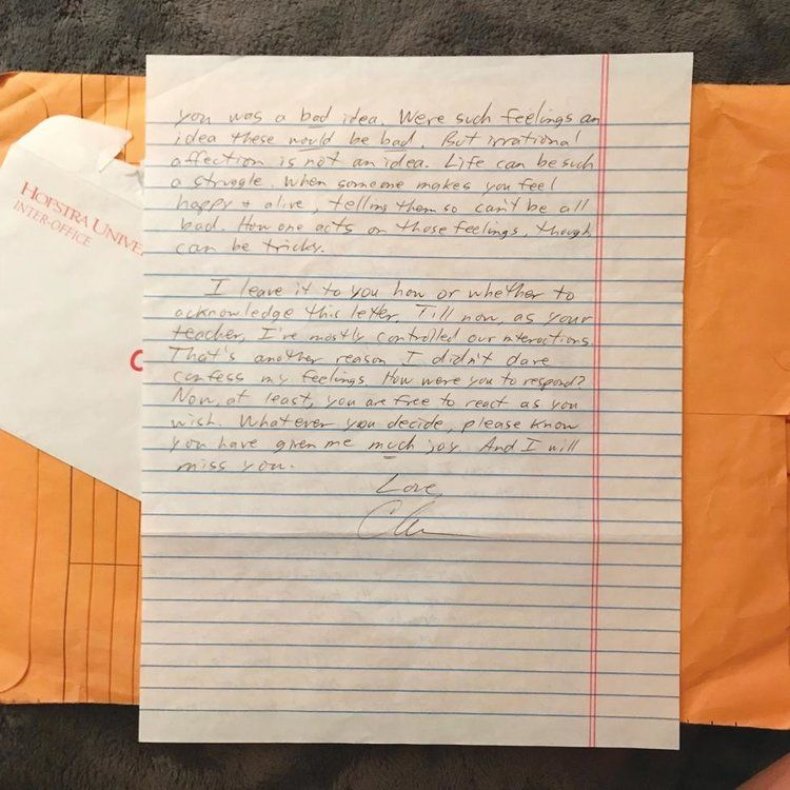 HOFSTRA UNIVE
INTER-OFFICE
you was a bad idea. Were such feelings an
idea these would be bad. But irrational
affection is not an idea. Life can be such
a struggle. When someone makes you feel
happy + alive, telling them so can't be all
bad. How one acts on those feelings, though
can be tricky.
I leave it to you how or whether to
acknowledge this letter. Till now, as your
teacher, I've mostly controlled our interactions.
That's another reason I didn't dare
confess my feelings. How were you to respond?
Now, at least, you are free to react as you
wish. Whatever you decide, please know
you have given me much joy. And I will
miss you.
Love,